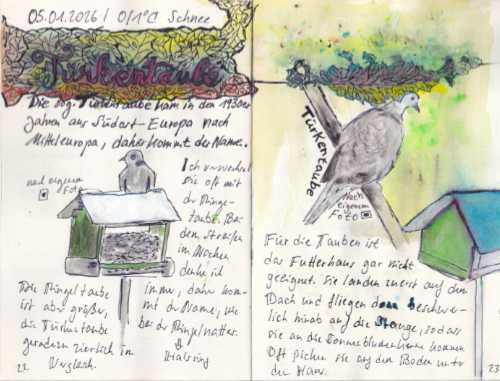 05.01.2026 / 0/1°C Schnee
Türkentaube
Die sog. Türkentaube kam in den 1930er
Jahren aus Südost-Europa nach
Mitteleuropa, daher kommt der Name.
nach eigenem
Foto
Ich verwechsel
sie oft mit
der Ringel-
taube. Bei
dem Streifen
im Nacken
denke ich
immer, daher kom-
mt der Name, wie
bei der Ringelnatter.
Halsring
Die Ringeltaube
ist aber größer,
die Türkentaube
geradezu zierlich im
Vergleich.
22
Türkentaube
Nach
eigenem
Foto
Für die Tauben ist
das Futterhaus gar nicht
geeignet. Sie landen zuerst auf dem
Dach und fliegen dann beschwer-
lich hinab auf die Stange, sodass
sie an die Sonnenblumenkerne kommen
Oft picken sie auf dem Boden unter
dem Haus.
23